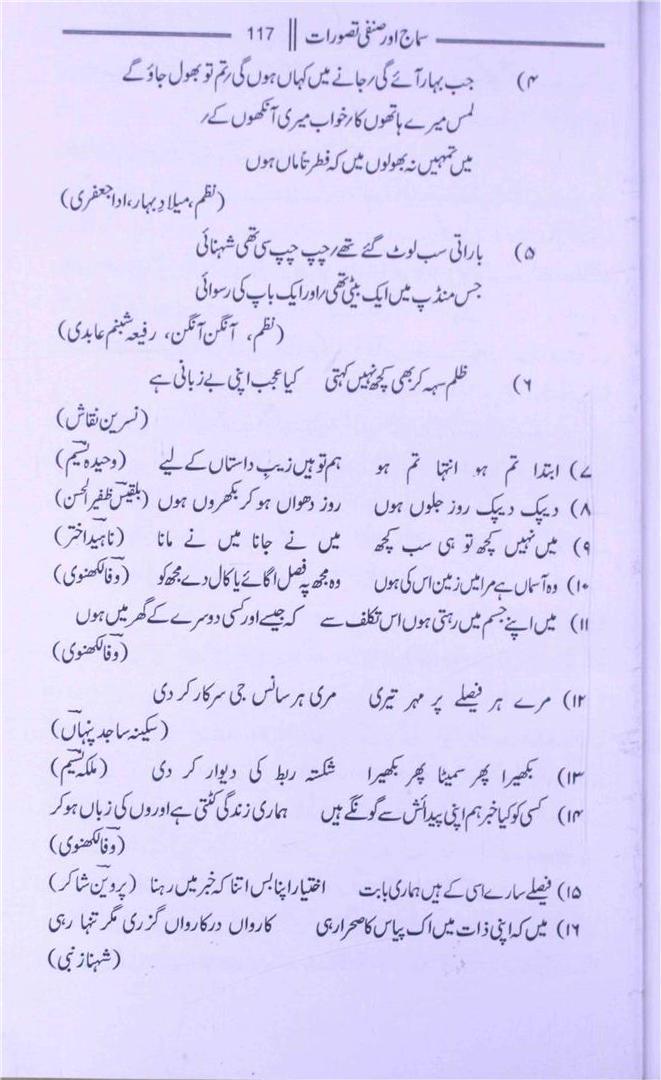 سماج اور صنفی تصورات || 117
۴) جب بہار آئے گی / جانے میں کہاں ہوں گی / تم تو بھول جاؤ گے
لمس میرے ہاتھوں کا / خواب میری آنکھوں کے /
میں تمہیں نہ بھولوں میں کہ فطرتاً ماں ہوں
(نظم، میلادِ بہار، ادا جعفری)
۵) باراتی سب لوٹ گئے تھے / چپ چپ سی تھی شہنائی
جس منڈپ میں ایک بیٹی تھی / اور ایک باپ کی رسوائی
(نظم، آنگن آنگن، رفیعہ شبنم عابدی)
۶) ظلم سہہ کر بھی کچھ نہیں کہتی کیا عجب اپنی بے زبانی ہے
(نسرین نقاش)
۷) ابتدا تم ہو انتہا تم ہو ہم تو ہیں زیبِ داستاں کے لیے (وحیدہ نسیم)
۸) دیپک دیپک روز جلوں ہوں روز دھواں ہو کر بکھروں ہوں (بلقیس ظفیر الحسن)
۹) میں نہیں کچھ تو ہی سب کچھ میں نے جانا میں نے مانا (ناہید اختر)
۱۰) وہ آسماں ہے مرا میں زمین اس کی ہوں وہ مجھ پہ فصل اگائے یا کال دے مجھ کو (وفا لکھنوی)
۱۱) میں اپنے جسم میں رہتی ہوں اس تکلف سے کہ جیسے اور کسی دوسرے کے گھر میں ہوں
(وفا لکھنوی)
۱۲) مرے ہر فیصلے پر مہر تیری مری ہر سانس جی سرکار کر دی
(سکینہ ساجد پنہاں)
۱۳) بکھیرا پھر سمیٹا پھر بکھیرا شکستہ ربط کی دیوار کر دی (ملکہ نسیم)
۱۴) کسی کو کیا خبر ہم اپنی پیدائش سے گونگے ہیں ہماری زندگی کٹتی ہے اوروں کی زباں ہو کر
(وفا لکھنوی)
۱۵) فیصلے سارے اسی کے ہیں ہماری بابت اختیار اپنا بس اتنا کہ خبر میں رہنا (پروین شاکر)
۱۶) میں کہ اپنی ذات میں اک پیاس کا صحرا رہی کارواں در کارواں گزری مگر تنہا رہی
(شہناز نبی)